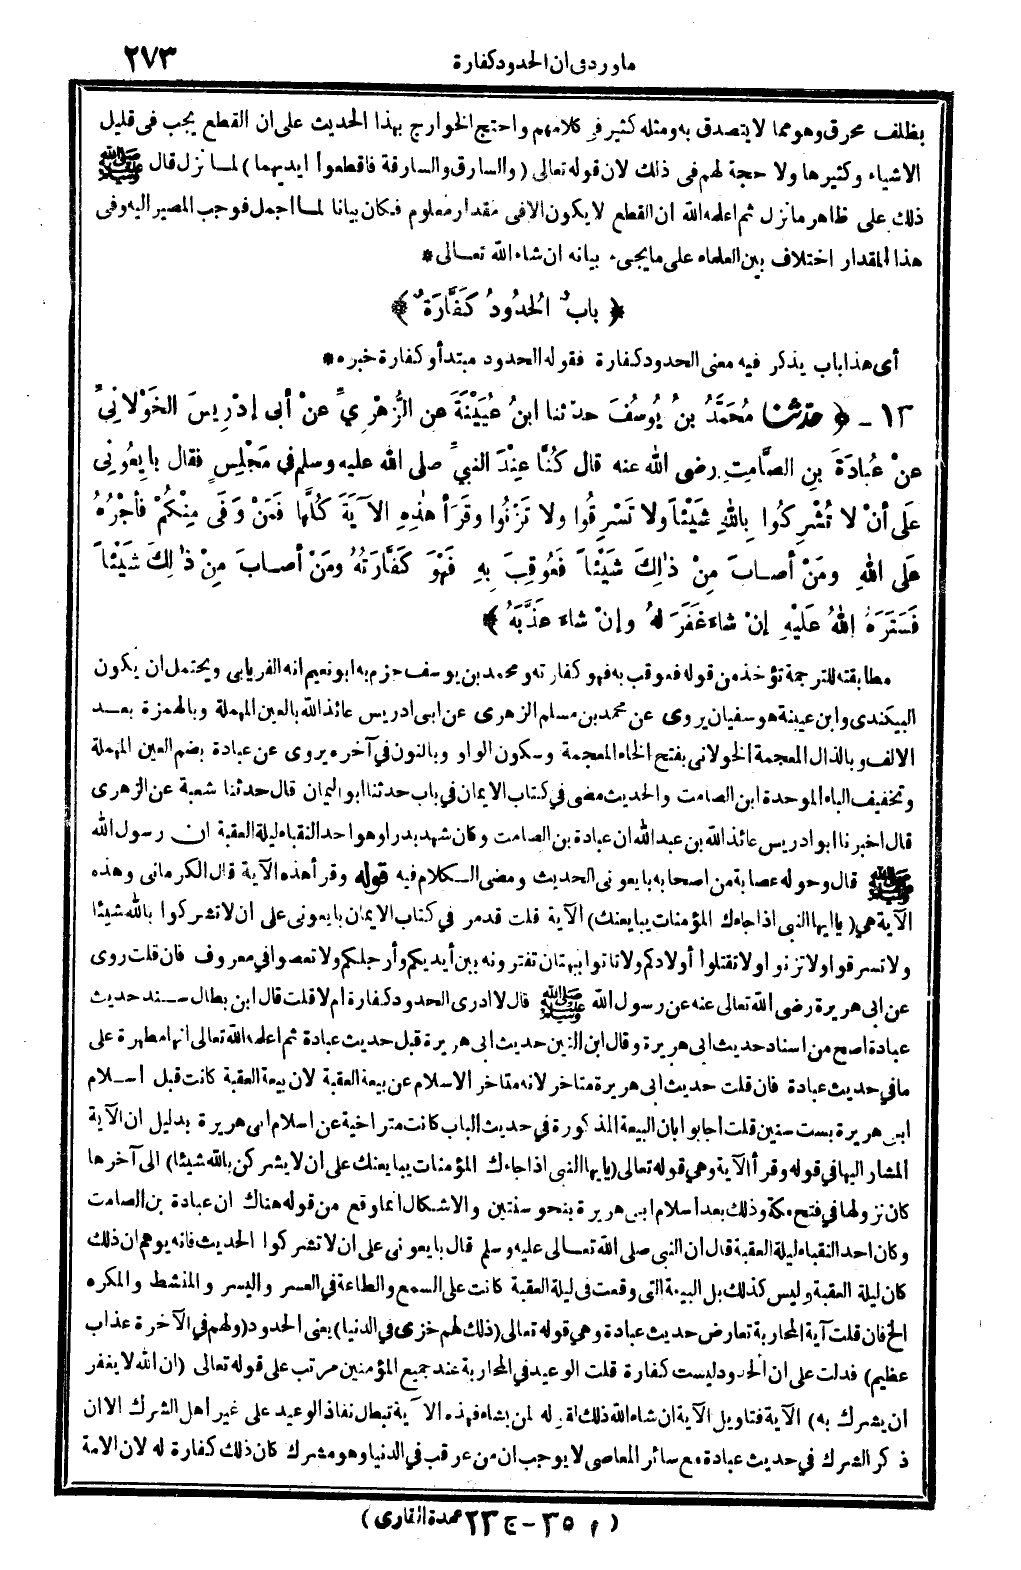 ماورد فى ان الحدود كفارة ٢٧٣
بظلف محرق وهو مما لا يتصدق به ومثله كثير فى كلامهم واحتج الخوارج بهذا الحديث على ان القطع يجب فى قليل
الاشياء وكثيرها ولا حجة لهم فى ذلك لان قوله تعالى (والسارق والسارقة فاقطعوا ايديهما) لما نزل قال ﷺ
ذلك على ظاهر ما نزل ثم اعلمه الله ان القطع لا يكون الا فى مقدار معلوم فكان بيانا لما اجمل فوجب المصير اليه وفى
هذا المقدار اختلاف بين العلماء على ما يجىء بيانه ان شاء الله تعالى *
﴿ بابٌ الحُدُودُ كَفَّارَةٌ ﴾
أى هذا باب يذكر فيه معنى الحدود كفارة فقوله الحدود مبتدأ وكفارة خبره *
١٢ - ﴿ حدثنا مُحَمَّدُ بنُ يُوسُفَ حدثنا ابنُ عُيَيْنَةَ عنِ الزُّهْرِيِّ عنْ أبى إدْرِيسَ الخَوْلانِيِّ
عنْ عُبادَةَ بنِ الصَّامِتِ رضى الله عنه قال كُنَّا عِنْدَ النبيِّ صلى الله عليه وسلم في مَجْلِسٍ فقال بايِعُونِى
عَلَى أنْ لا تُشْرِكُوا باللهِ شَيْئاً ولا تَسْرِقُوا ولا تَزْنُوا وقرَأ هذِهِ الآيَةَ كُلَّها فَمَنْ وَفَى مِنْكُمْ فأجْرُهُ
عَلَى اللهِ ومَنْ أصابَ مِنْ ذٰلِكَ شَيْئاً فَعُوقِبَ بِهِ فَهْوَ كَفَّارَتُهُ ومَنْ أصابَ مِنْ ذٰلِكَ شَيْئاً
فَسَتَرَهُ اللهُ عَلَيْهِ إنْ شاءَ غَفَرَ لهُ وإنْ شاءَ عَذَّبَهُ ﴾
مطابقته للترجمة تؤخذ من قوله فعوقب به فهو كفارته ومحمد بن يوسف جزم به ابو نعيم انه الفريابى ويحتمل ان يكون
البيكندى وابن عيينة هو سفيان يروى عن محمد بن مسلم الزهرى عن ابى ادريس عائذ الله بالعين المهملة وبالهمزة بعد
الالف وبالذال المعجمة الخولانى بفتح الخاء المعجمة وسكون الواو وبالنون في آخره يروى عن عبادة بضم العين المهملة
وتخفيف الباء الموحدة ابن الصامت والحديث مضى في كتاب الايمان في باب حدثنا ابو اليمان قال حدثنا شعبة عن الزهرى
قال اخبرنا ابو ادريس عائذ الله بن عبد الله ان عبادة بن الصامت وكان شهد بدرا وهو احد النقباء ليلة العقبة ان رسول الله
ﷺ قال وحوله عصابة من اصحابه بايعونى الحديث ومضى الكلام فيه قوله وقرأ هذه الآية قال الكرمانى وهذه
الآية هي (ياايها النبى اذا جاءك المؤمنات يبايعنك) الآية قلت قد مر في كتاب الايمان بايعونى على ان لا تشركوا بالله شيئا
ولا تسرقوا ولا تزنوا ولا تقتلوا أولادكم ولا تاتوا ببهتان تفترونه بين أيديكم وأرجلكم ولا تعصوا في معروف فان قلت روى
عن ابى هريرة رضى الله تعالى عنه عن رسول الله ﷺ قال لا ادرى الحدود كفارة ام لا قلت قال ابن بطال سند حديث
عبادة اصح من اسناد حديث ابى هريرة وقال ابن التين حديث ابى هريرة قبل حديث عبادة ثم اعلمه الله تعالى انها مطهرة على
ما في حديث عبادة فان قلت حديث ابى هريرة متاخر لانه متاخر الاسلام عن بيعة العقبة لان بيعة العقبة كانت قبل اسلام
ابى هريرة بست سنين قلت اجابوا بان البيعة المذكورة في حديث الباب كانت متراخية عن اسلام ابى هريرة بدليل ان الآية
المشار اليها في قوله وقرأ الآية وهي قوله تعالى (يايها النبى اذا جاءك المؤمنات يبايعنك على ان لا يشركن بالله شيئا) الى آخرها
كان نزولها في فتح مكة وذلك بعد اسلام ابى هريرة بنحو سنتين والاشكال انما وقع من قوله هناك ان عبادة بن الصامت
وكان احد النقباء ليلة العقبة قال ان النبى صلى الله تعالى عليه وسلم قال بايعونى على ان لا تشركوا الحديث فانه يوهم ان ذلك
كان ليلة العقبة وليس كذلك بل البيعة التى وقعت فى ليلة العقبة كانت على السمع والطاعة في العسر واليسر والمنشط والمكره
الخ فان قلت آية المحاربة تعارض حديث عبادة وهي قوله تعالى (ذلك لهم خزى في الدنيا) يعنى الحدود (ولهم في الآخرة عذاب
عظيم) فدلت على ان الحدود ليست كفارة قلت الوعيد في المحاربة عند جميع المؤمنين مرتب على قوله تعالى (ان الله لا يغفر
ان يشرك به) الآية فتاويل الآية ان شاء الله ذلك لقوله لمن يشاء فهذه الآية تبطل نفاذ الوعيد على غير أهل الشرك الا ان
ذكر الشرك في حديث عبادة مع سائر المعاصى لا يوجب ان من عوقب في الدنيا وهو مشرك كان ذلك كفارة له لان الامة
(م ٣٥ - ج ٢٣ عمدة القارى)